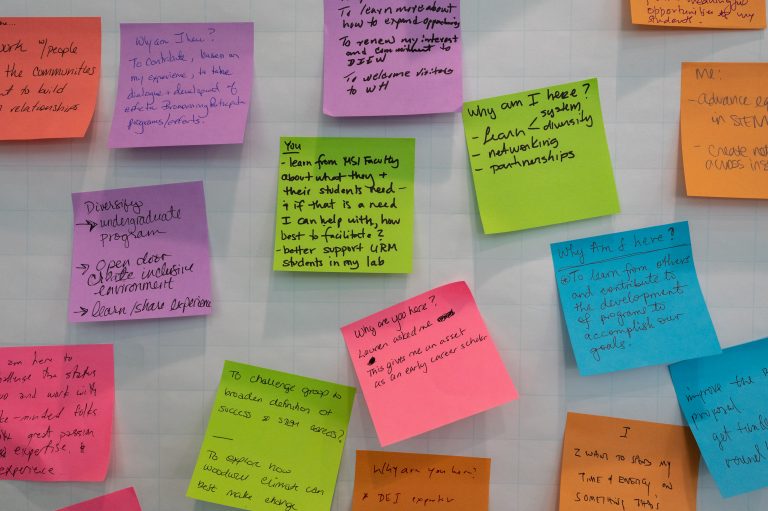 work w/people
the communities
to build
relationships
Why am I here?
To contribute, based on
my experience, to take
dialogue + development of
effective Broadening Participation
programs/efforts.
To learn more about
how to expand opportunities
To renew my interest
and commitment to
To welcome visitors
to WH
Why am I here?
- learn < system,
diversity
- networking
- partnerships
opportunities
students.
Me:
- advance
in STEM
- create
across
You
- learn from MSI Faculty
about what they +
their students need -
+ if that is a need
I can help with, how
best to facilitate?
- better support URM
students in my lab
Diversify
→ undergraduate
program
→ Open door
create inclusive
environment
→ learn/share experience
Why Am I here?
To learn from others
and contribute to
the development
of programs to
accomplish our
goals.
Why are you here?
Lauren asked me
This gives me an asset
as an early career scholar
am here to
challenge the status
and work with
like-minded folks
great passion
expertise, &
experience
To challenge group to
broaden definition of
success &
To explore how
Woodwell Climate can
best make change
Why are you here?
* DEI expertise
I
I WANT TO SPEND MY
TIME & ENERGY ON
SOMETHING THAT
improve the
proposal
get
round